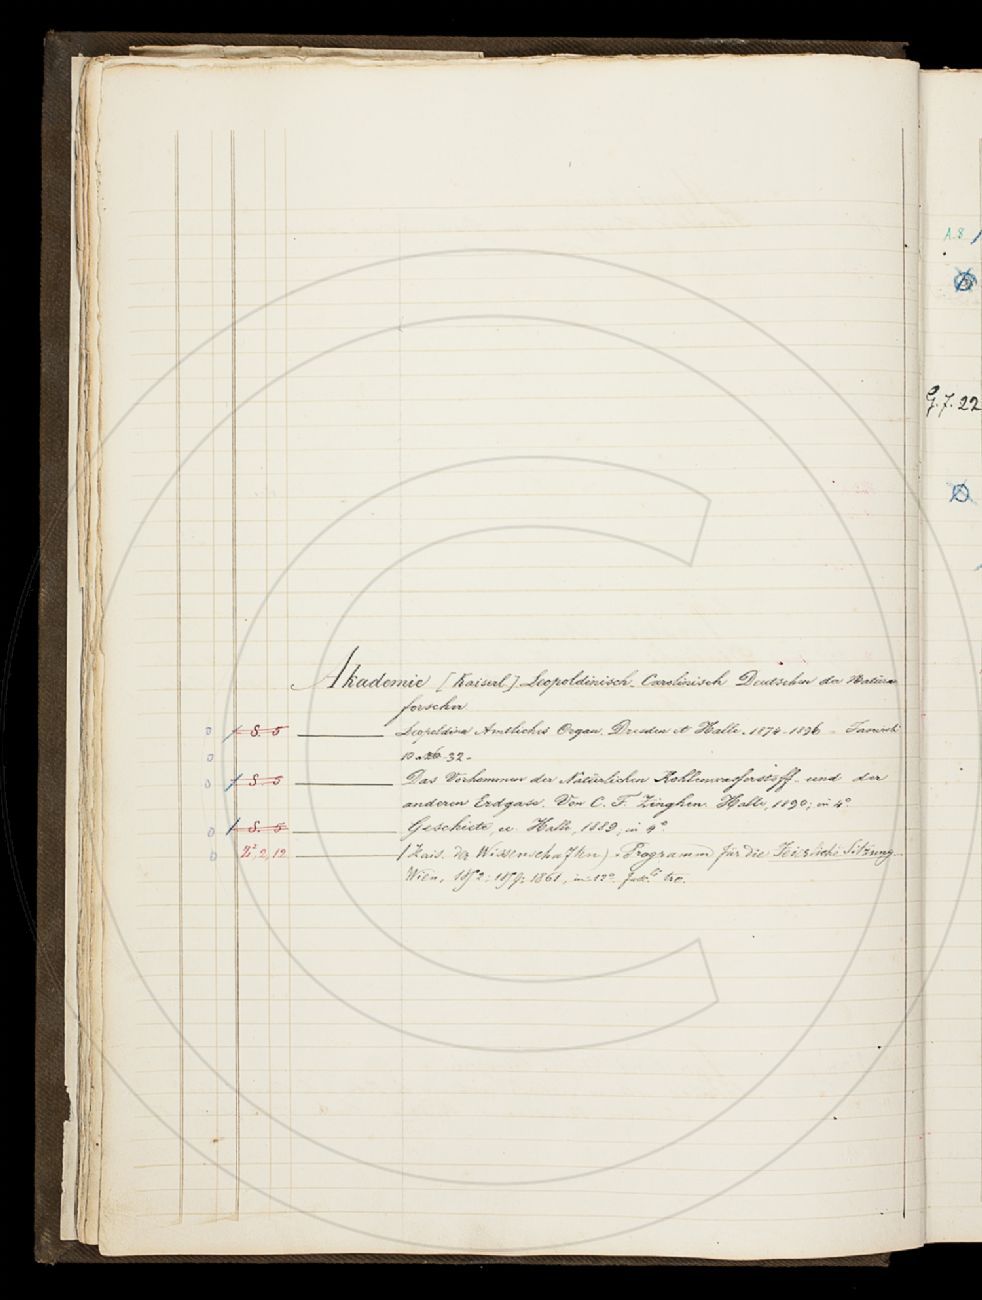 Akademie [Kaiserl.] Leopoldinisch-Carolinisch Deutschen der Natur-
forscher
S. 5 Leopoldina Amtliches Organ. Dresden et Halle. 1874-1896
32.
S. 5 Das Vorkommen der Natürlichen Kohlenwasserstoff- und der
anderen Erdgase. Von C. F. Zinghen. Halle, 1890; in 4°
S. 5 Geschichte, Halle, 1889, in 4°
2, 12 (Kais. der Wissenschaften) Programm für die Feierliche Sitzung
Wien, 1861, in 12°
A. 8
G. 7. 22